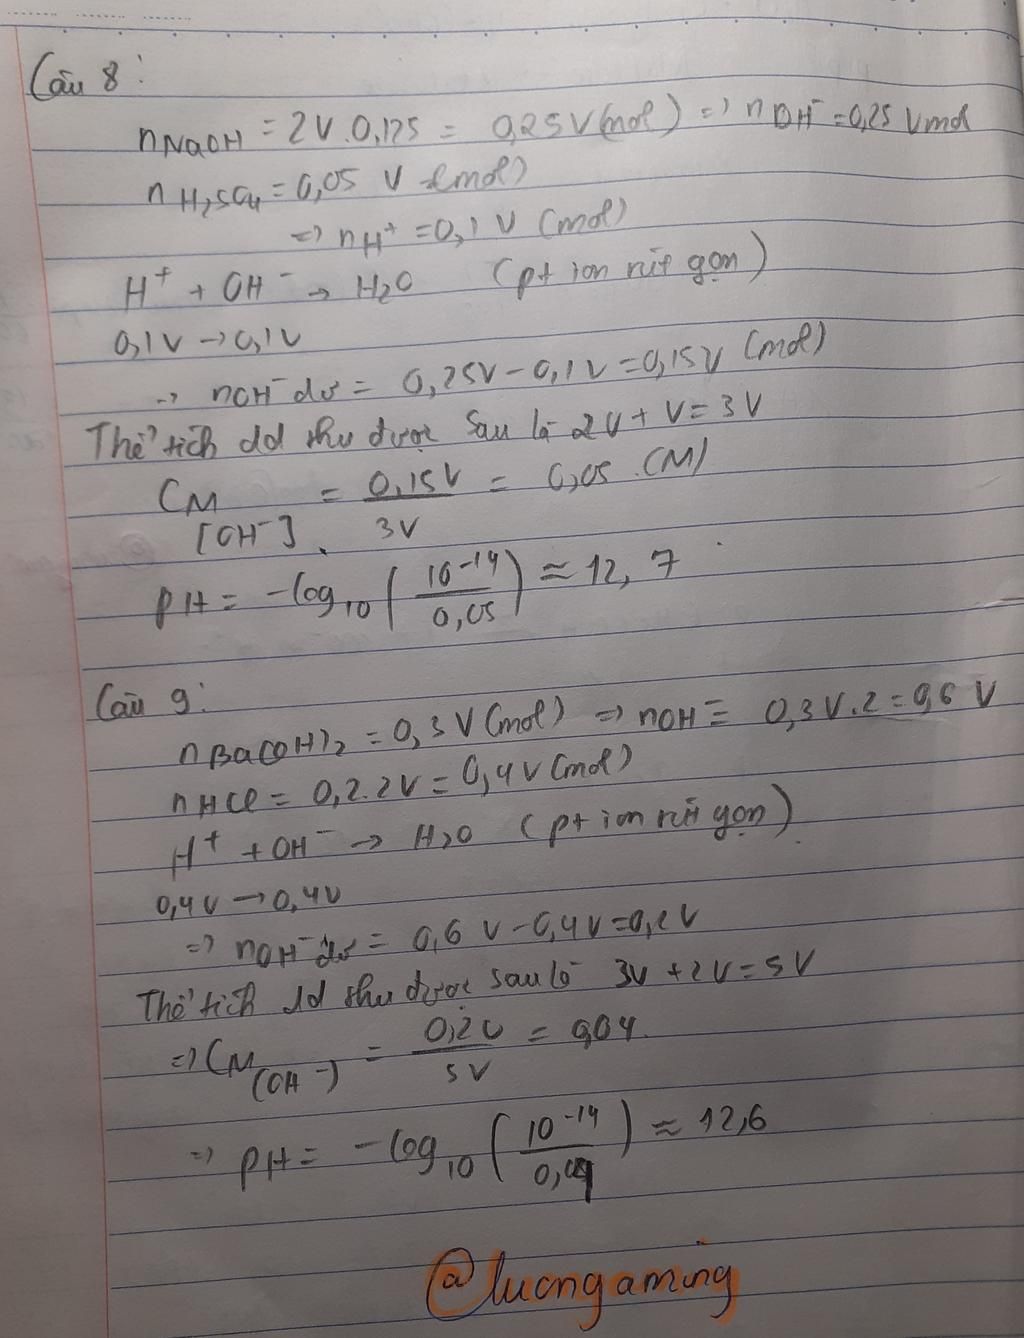 Câu 8:
nNaOH = 2V.0,125 = 0,25V(mol) => nOH⁻ = 0,25 Vmol
nH₂SO₄ = 0,05 V (mol)
=> nH⁺ = 0,1 V (mol)
H⁺ + OH⁻ → H₂O (pt ion rút gọn)
0,1V → 0,1V
→ nOH⁻ dư = 0,25V - 0,1V = 0,15V (mol)
Thể tích dd thu được sau là 2V + V = 3V
CM [OH⁻] = 0,15V / 3V = 0,05 (M)
pH = -log₁₀(10⁻¹⁴ / 0,05) ≈ 12,7
Câu 9:
nBa(OH)₂ = 0,3 V (mol) => nOH⁻ = 0,3V.2 = 0,6 V
nHCl = 0,2.2V = 0,4V (mol)
H⁺ + OH⁻ → H₂O (pt ion rút gọn)
0,4V → 0,4V
=> nOH⁻ dư = 0,6 V - 0,4V = 0,2V
Thể tích dd thu được sau là 3V + 2V = 5V
=> CM (OH⁻) = 0,2V / 5V = 0,04
=> pH = -log₁₀(10⁻¹⁴ / 0,04) ≈ 12,6
@luongaming